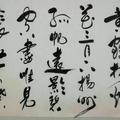 黄鶴樓
花三月下揚州
孤帆遠影碧
空盡唯見